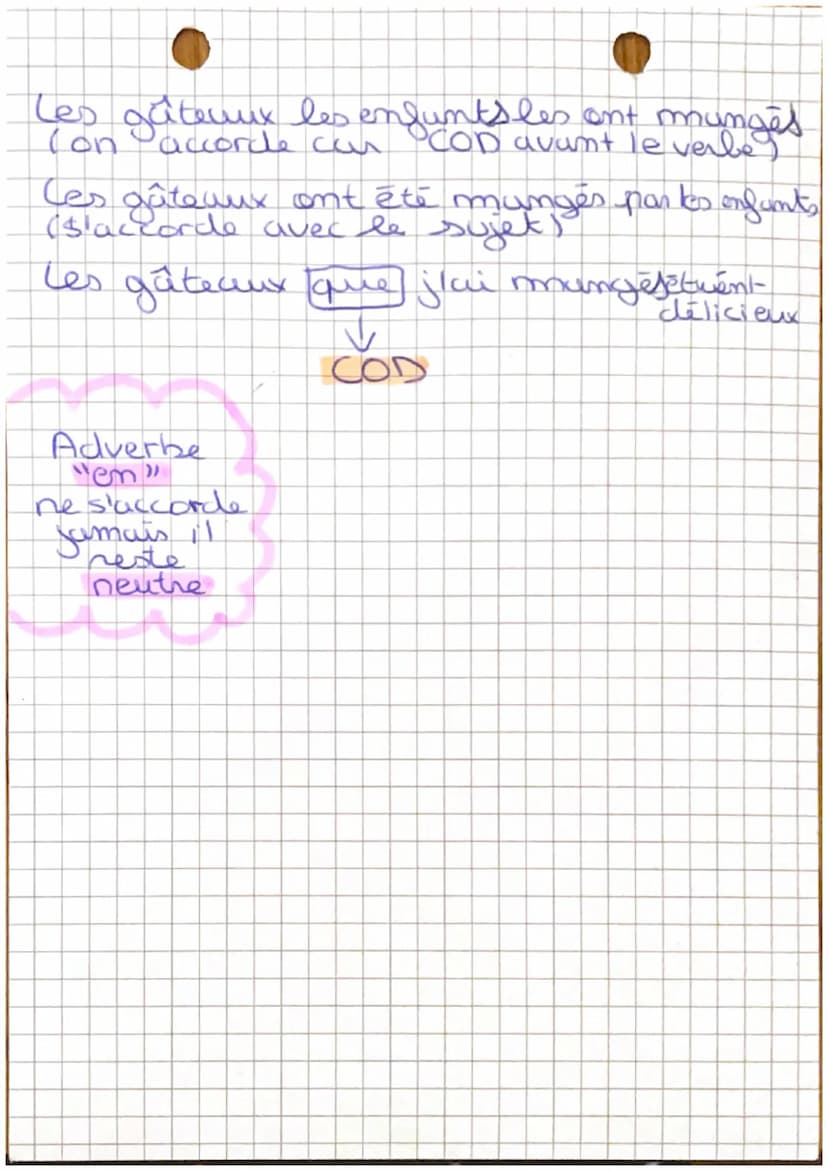 Les gâteaux les enfants les ont mangés
(on accorde car COD avant le verbe)
Les gâteaux ont été mangés par les enfants
(s'accorde avec le sujet)
Les gâteaux que j'ai mangés étaient
délicieux
COD
Adverbe
"en"
ne s'accorde
jamais il
reste
neutre